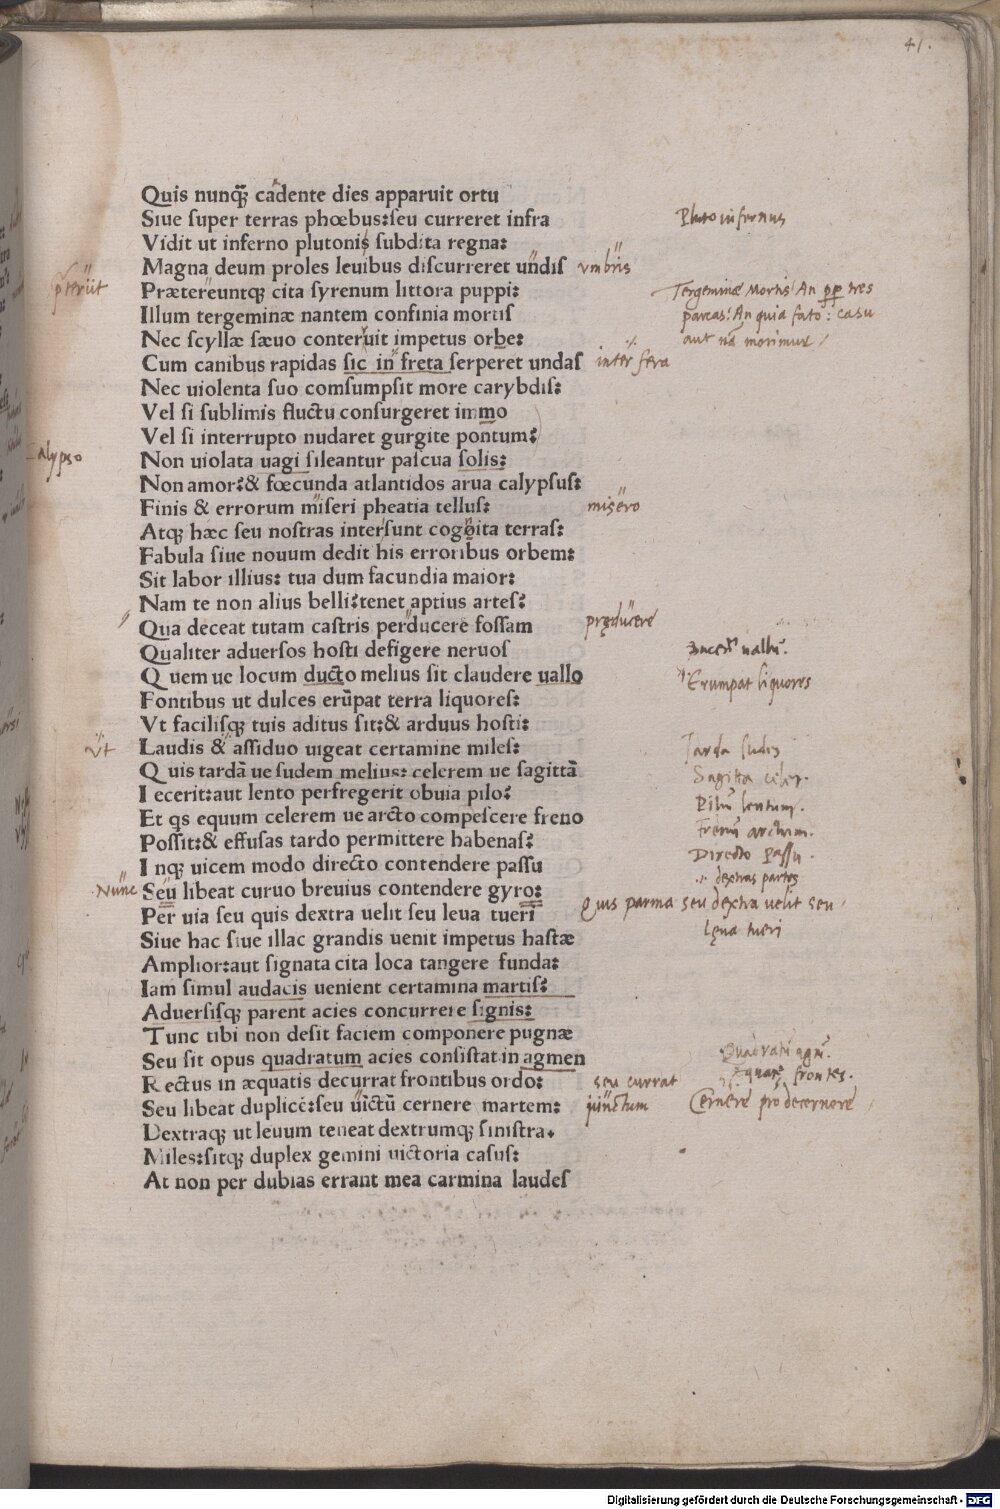 41.
Quis nunq̃ꝫ cadente dies apparuit ortu
Siue super terras phœbus:seu curreret infra
Pluto infernus
Vidit ut inferno plutonis subdita regna:
Magna deum proles leuibus discurreret undis
vmbris
Prætereuntqꝫ cita syrenum littora puppi:
Tergeminæ Mortis! An
tres
Illum tergeminæ nantem confinia mortis
parcas: An quia fato: casu
Nec scyllæ sæuo conteruit impetus orbe:
aut morimur
Cum canibus rapidas sic in freta serperet undas
inter fera
Nec uiolenta suo comsumpsit more carybdis:
Vel si sublimis fluctu consurgeret immo
Vel si interrupto nudaret gurgite pontum:
Calypso
Non uiolata uagi sileantur pascua solis:
Non amor:& fœcunda atlantidos arua calypsus:
Finis & errorum miseri pheatia tellus:
misero
Atqꝫ hæc seu nostras intersunt cognita terras:
Fabula siue nouum dedit his erroribus orbem:
Sit labor illius: tua dum facundia maior:
Nam te non alius belli:tenet aptius artes:
Qua deceat tutam castris perducere fossam
producere
Qualiter aduersos hosti defigere neruos
Q uem ue locum ducto melius sit claudere uallo
Fontibus ut dulces erũpat terra liquores:
Erumpat liquores
Vt facilisqꝫ tuis aditus sit:& arduus hosti:
Vt
Laudis & assiduo uigeat certamine miles:
Tarda sudis
Q uis tardã ue sudem melius: celerem ue sagittã
Sagitta celer.
I ecerit:aut lento perfregerit obuia pilo:
Pilũ lentum.
Et qs equum celerem ue arcto compescere freno
Frenũ arctum.
Possit:& effusas tardo permittere habenas:
Directo Passu.
I nqꝫ uicem modo directo contendere passu
dextras partes
Nunc
Seu libeat curuo breuius contendere gyro:
Quis parma seu dextra uelit seu
Per uia seu quis dextra uelit seu leua tueri
læua tueri
Siue hac siue illac grandis uenit impetus hastæ
Amplior:aut signata cita loca tangere funda:
Iam simul audacis uenient certamina martis:
Aduersisqꝫ parent acies concurrere signis:
Tunc tibi non desit faciem componere pugnæ
Seu sit opus quadratum acies consistat in agmen
Quadratũ agmẽ.
R ectus in æquatis decurrat frontibus ordo:
seu currat
frontes.
Seu libeat duplicẽ:seu uictũ cernere martem:
iunctum
Cernere pro decernere
Dextraqꝫ ut leuum teneat dextrumqꝫ sinistra.
Miles:sitqꝫ duplex gemini uictoria casus:
At non per dubias errant mea carmina laudes
Digitalisierung gefördert durch die Deutsche Forschungsgemeinschaft - DFG